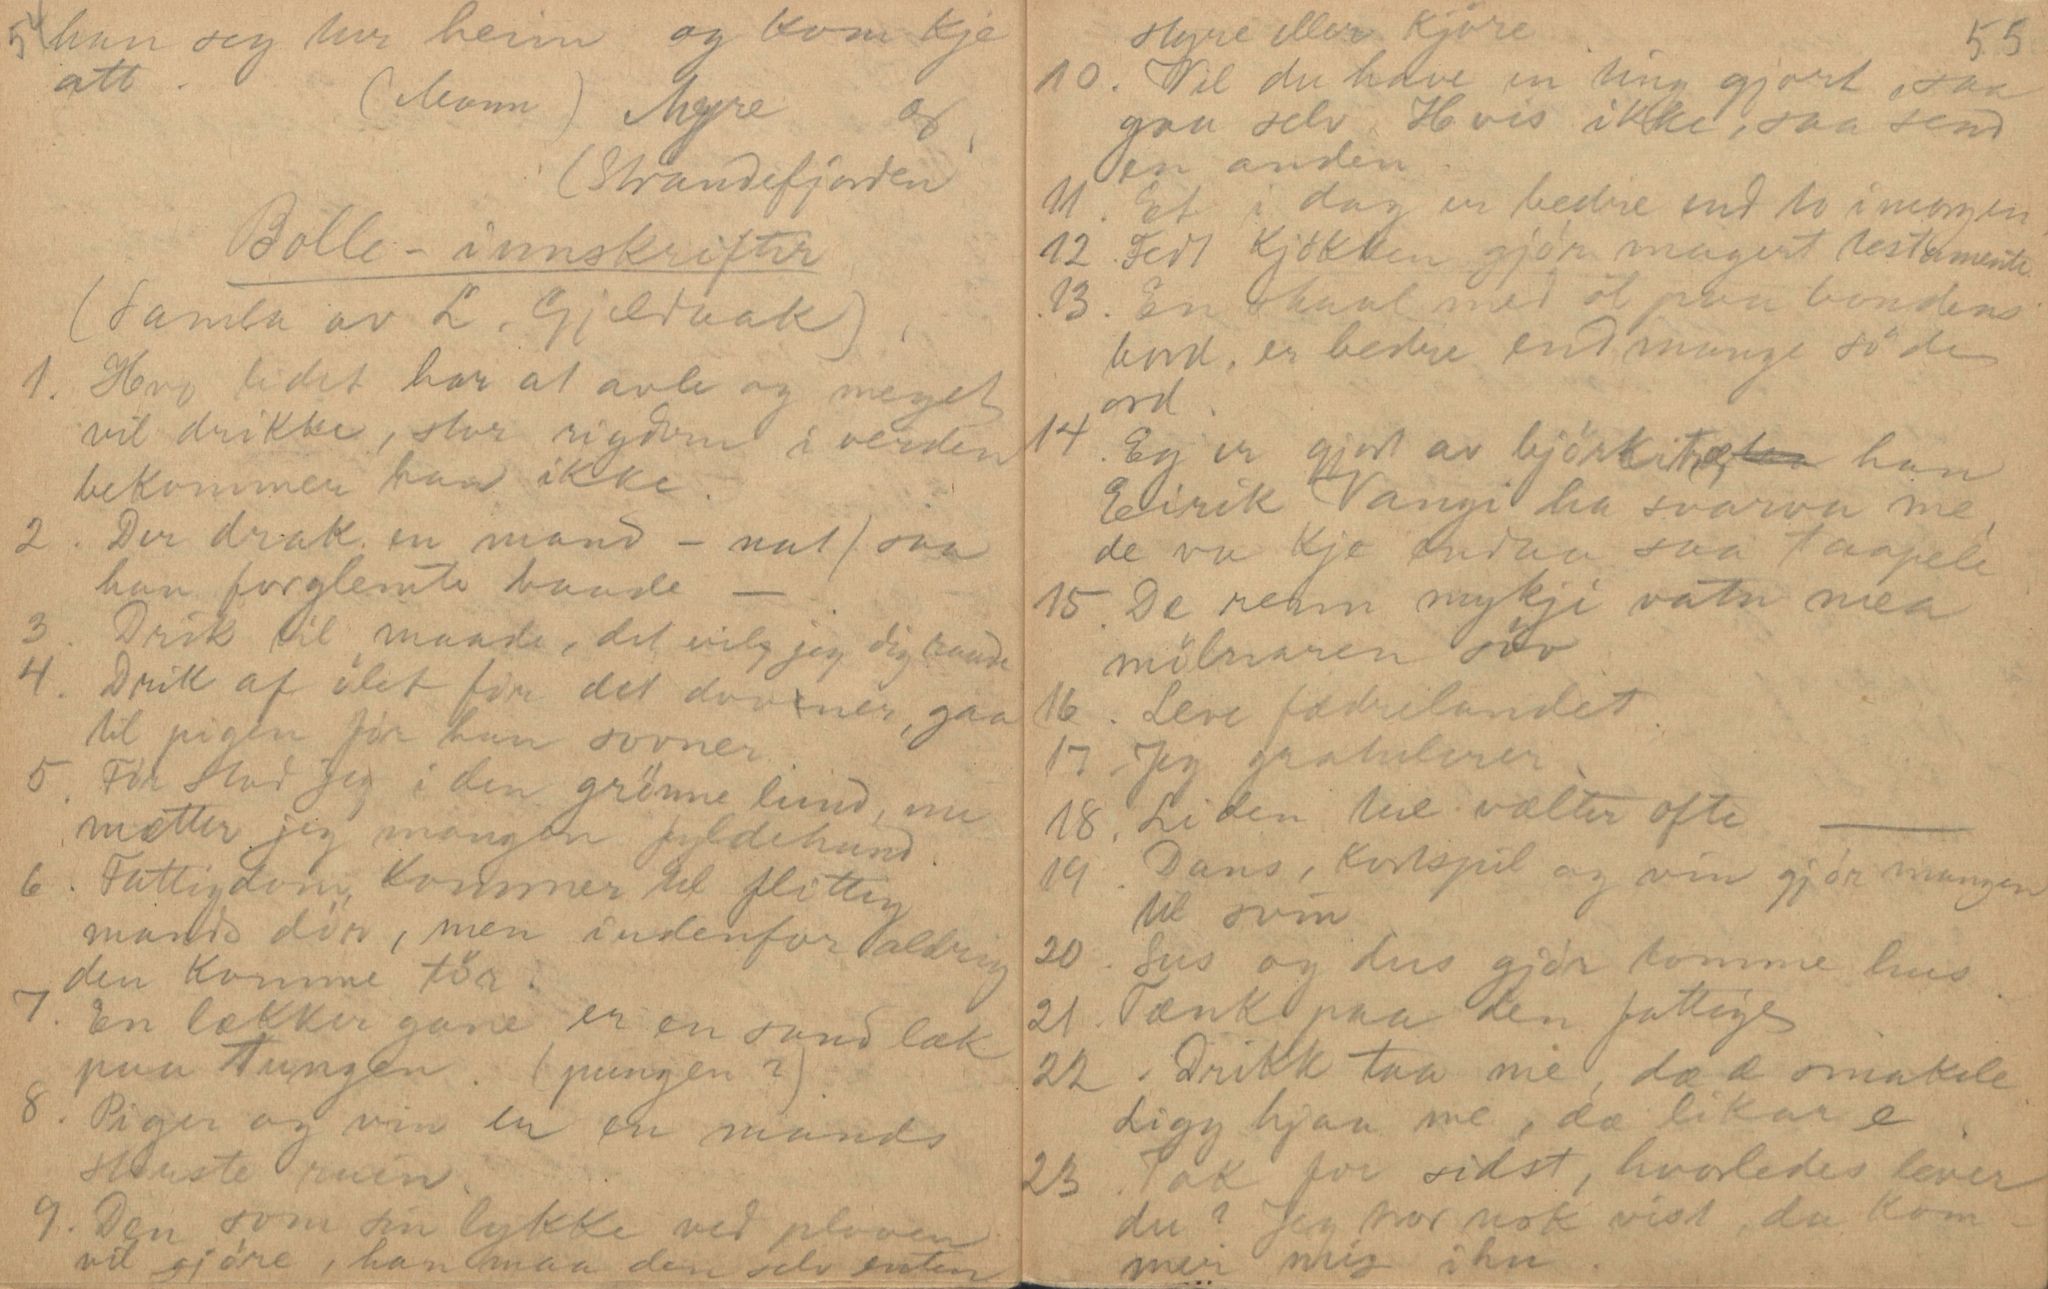 54
han seg tur heim og kom kje
att.
(Mann) Myre og
(Strandefjorden
Bolle-innskrifter
(Samla av L. Gjeldaak).
1. Hvo lidet har at avle og meget
vil drikke, stor rigdom i verden
bekommer han ikke.
2. Der drak en mand - nat / saa
han forglemte baade —
3. Drik til maade, det vil jeg dig raade
4. Drik af ölet för det dovner, gaa
til pigen för hun sovner.
5. För stod jeg i den grönne lund, nu
mætter jeg mangen fyldehund.
6. Fattigdom kommer til flittig
mands dör, men indenfor aldrig
den komme tör.
7. En lækker gane er en sand læk
paa tungen. (pungen?)
8. Piger og vin er en mands
største ruin.
9. Den som sin lykke ved ploven
vil gjöre, han maa den selv enten
55
styre eller kjöre
10. Vil du have en ting gjort, saa
gaa selv. Hvis ikke, saa send
en anden.
11. Et i dag er bedre end to imorgen
12. Fedt kjökken gjör magert testamente
13. En skaal med öl paa bondens
bord, er bedre end mange söde
ord.
14. Eg er gjort av björkitræ, han
Eirik Vangi ha svarva me,
de va kje endaa saa taapele
15. De renn mykji vatn mea
mölnaren söv
16. Leve fædrelandet.
17. Jeg gratulerer.
18. Liden tue vælter ofte —
19. Dans, kortspil og vin gjör mangen
til svin
20. Sus og dus gjör tomme hus
21. Tænk paa den fattige
22. Drikk taa me, dæ æ smakele
Ligg hjaa me, dæ likar e.
23. Tak for sidst, hvorledes lever
du? Jeg tror nok vist, du kom-
mer mig ihu.